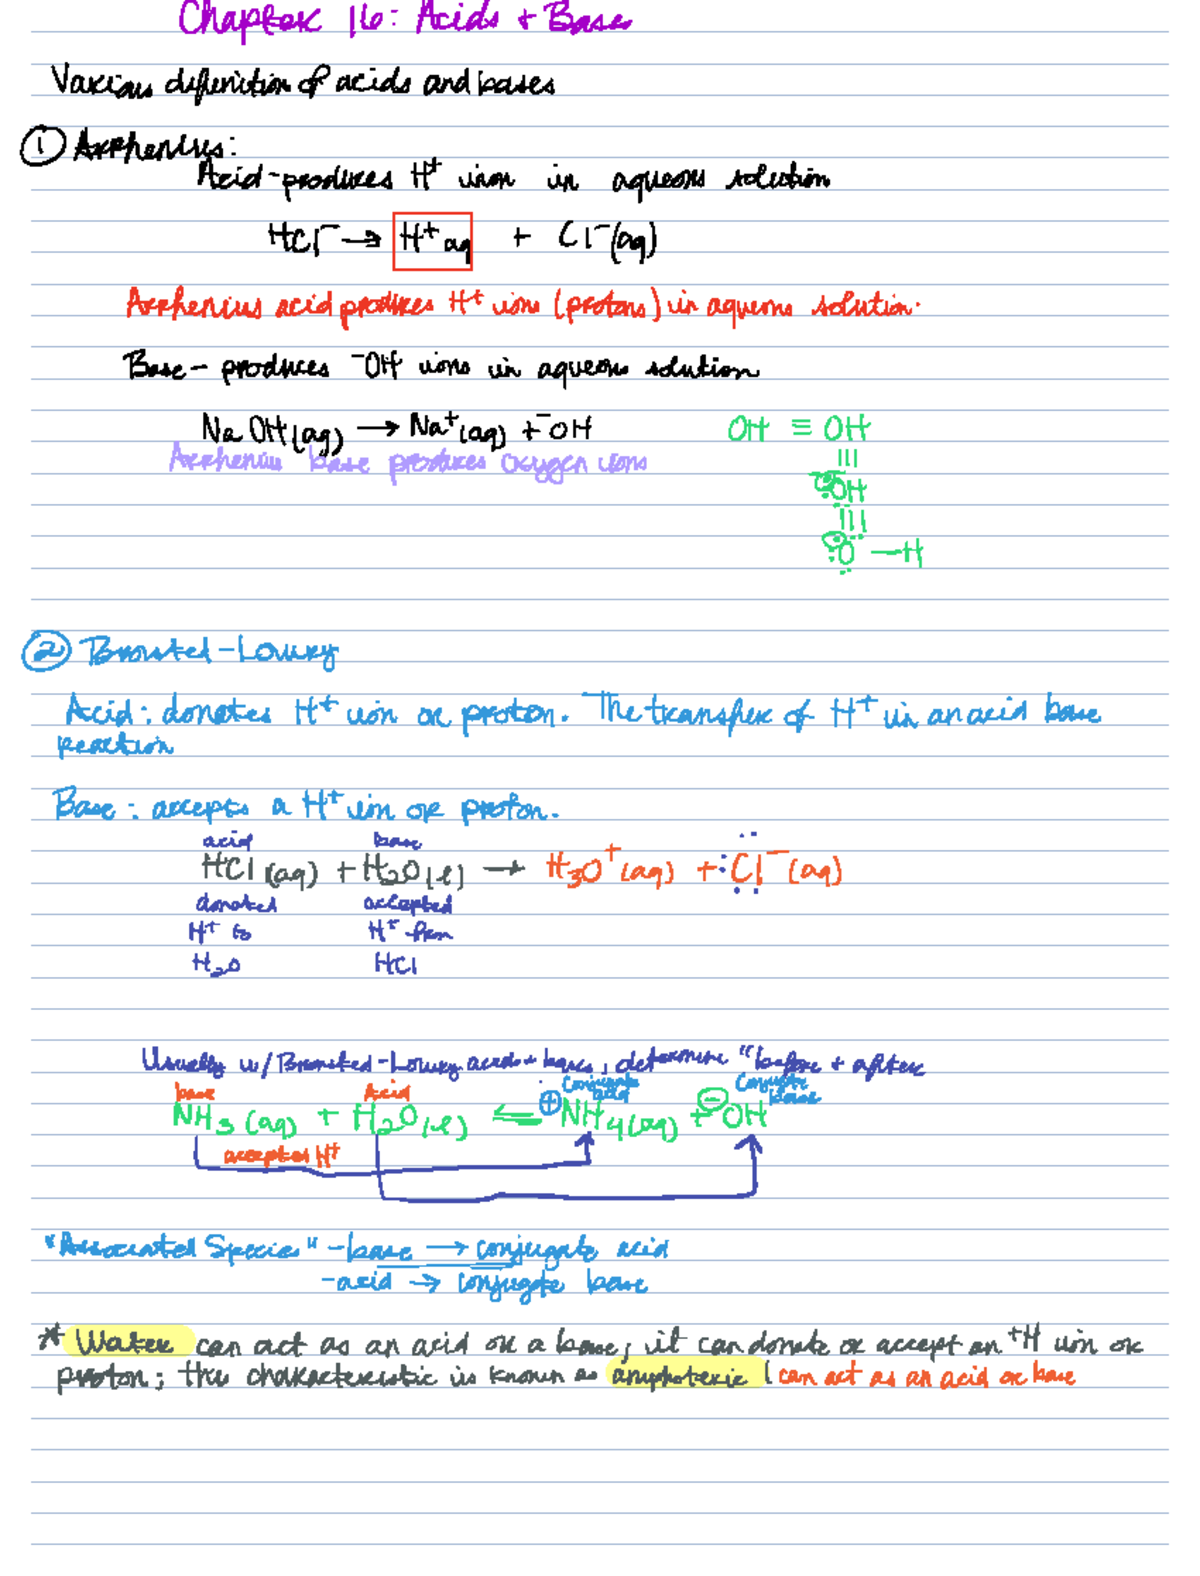 Chapter 16: Acids + Base
Various definition of acids and bases
① Arrhenius:
Acid-produces H⁺ iron in aqueous solution
HCl⁻ → H⁺ aq + Cl⁻(aq)
Arrhenius acid produces H⁺ ions (protons) in aqueous solution.
Base - produces ⁻OH ions in aqueous solution
NaOH(aq) → Na⁺(aq) + ⁻OH OH ≡ OH
Arrhenius base produces oxygen ions
|||
⊖:OH
|||
⊖:O—H
② Bronsted-Lowry
Acid: donates H⁺ ion or proton. The transfer of H⁺ in an acid base
reaction
Base: accepts a H⁺ ion or proton.
acid base
HCl(aq) + H₂O(l) → H₃O⁺(aq) + :Cl⁻(aq)
donated accepted
H⁺ to H⁺ from
H₂O HCl
Usually w/ Bronsted-Lowry acids + bases, determine "before + after
base Acid Conjugate acid Conjugate base
NH₃(aq) + H₂O(l) ⇌ ⊕NH₄(aq) + ⊖OH
accepted H⁺
"Associated Species" - base → conjugate acid
- acid → conjugate base
* Water can act as an acid or a base; it can donate or accept an ⁺H ion or
proton; this characteristic is known as amphoteric | can act as an acid or base